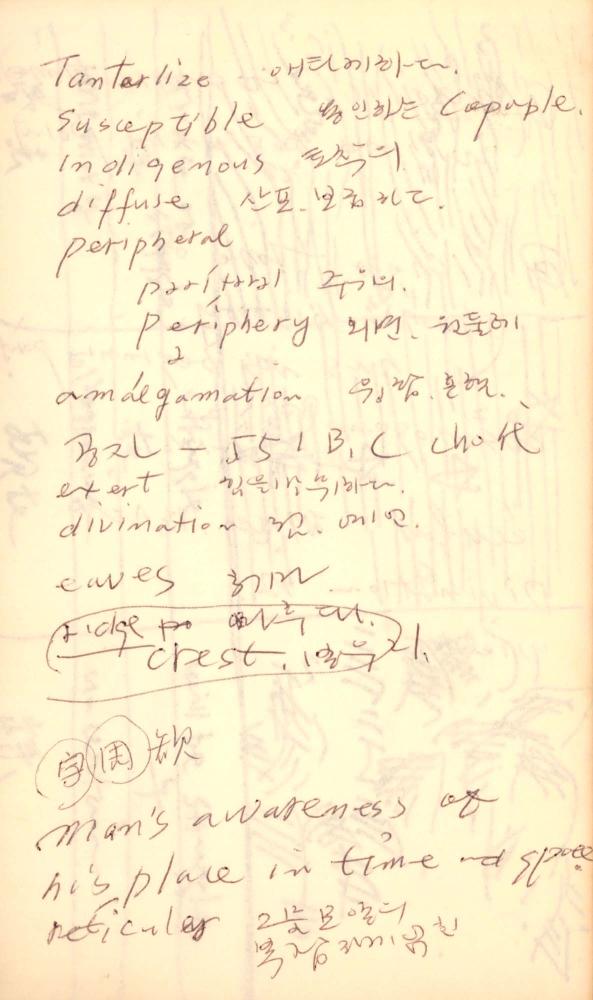 Tantarlize 애타게하다.
Susceptible 용인하는 Capaple.
Indigenous 토착의
diffuse 산포. 보급하다.
peripheral
주위의.
Periphery 외면. 원둘레
2
amálgamation 융합. 혼합.
공자 - 551 B.C Cho 代
exert 힘을 발휘하다.
divination 점. 예언.
eaves 처마
ridge po 마루대.
crest.
宇周 欽
Man's awareness of
his place in time nd space
reticular 그물모양의
복잡하게